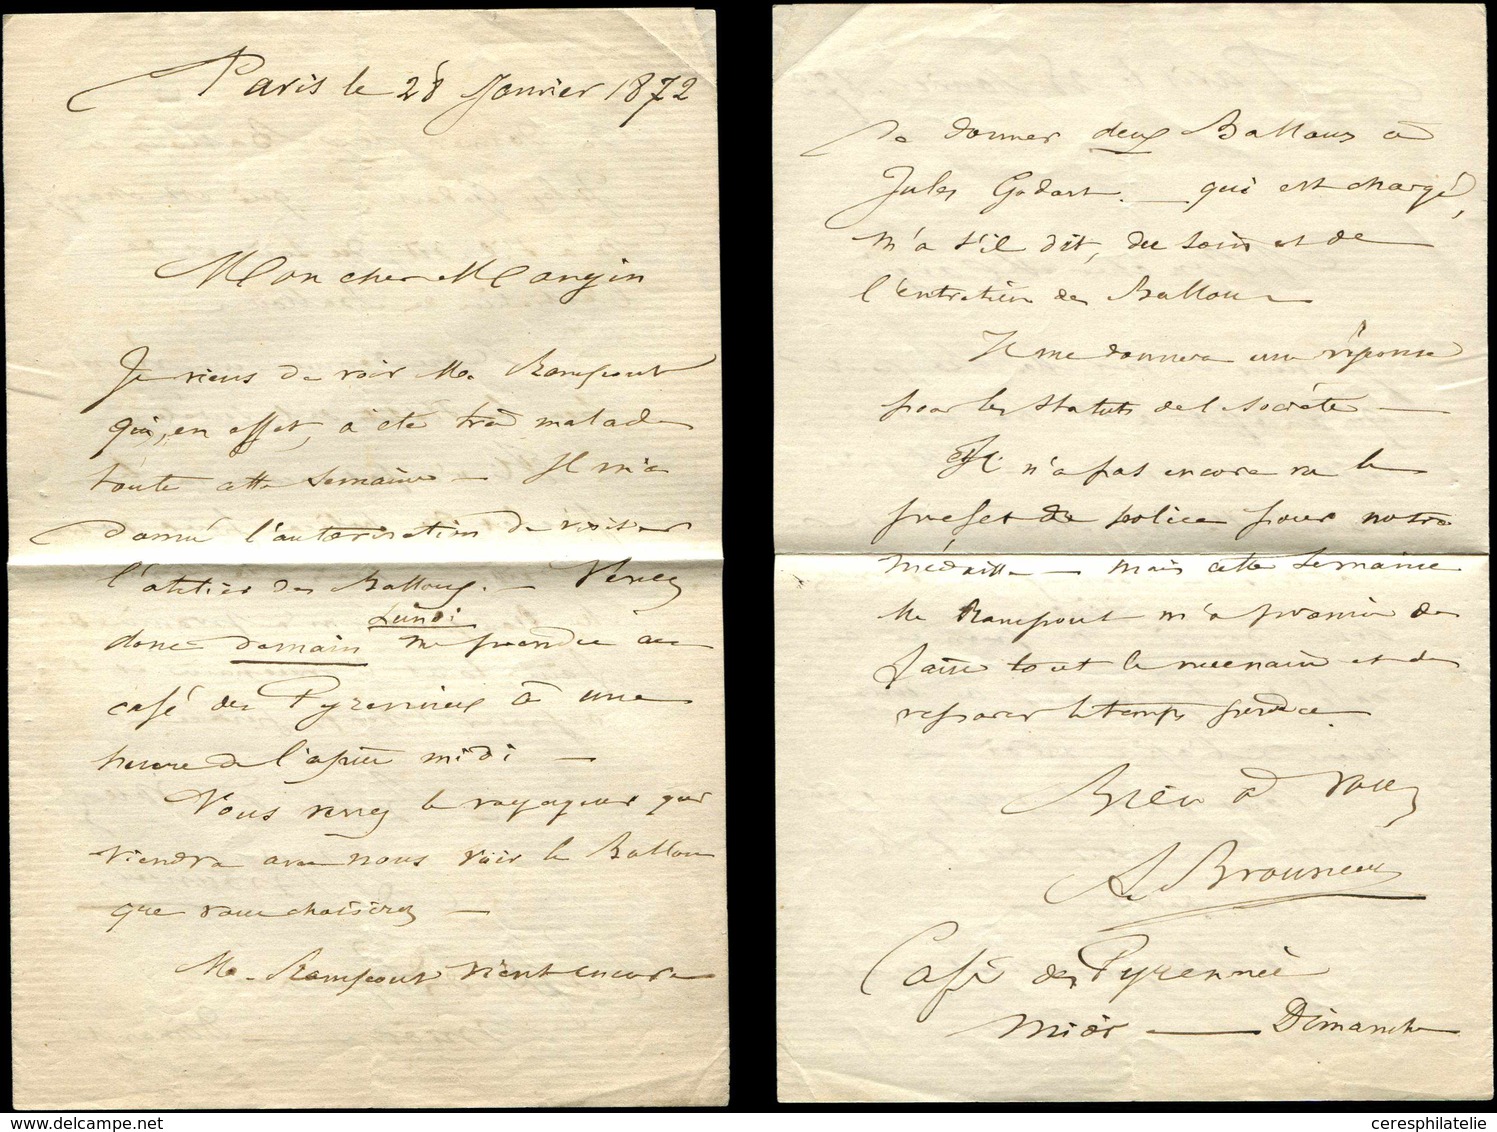 Paris le 28 Janvier 1872
Mon cher Mangin
Je viens de voir Mr. Rampont
qui, en effet, a été très malade
toute cette semaine — Il m'a
donné l'autorisation de visiter
l'atelier des Ballons. — Venez
Lundi
donc demain me prendre au
café des Pyrennées à une
heure de l'après midi —
Vous verrez le voyageur qui
viendra avec nous voir le Ballon
que vous choisirez —
Mr. Rampont vient encore
de donner deux Ballons à
Jules Godart. — qui est chargé,
m'a t'il dit, du soin et de
l'entretien des Ballons
Il me donnera une réponse
pour les statuts de la société —
Il n'a pas encore vu le
prefet de police pour notre
médaille — mais cette semaine
Mr Rampont m'a promis de
faire tout le necessaire et de
reparer le temps perdu.
Bien à vous
A. Brouneau
Café des Pyrennées
midi — Dimanche
ceresphilatelie.com